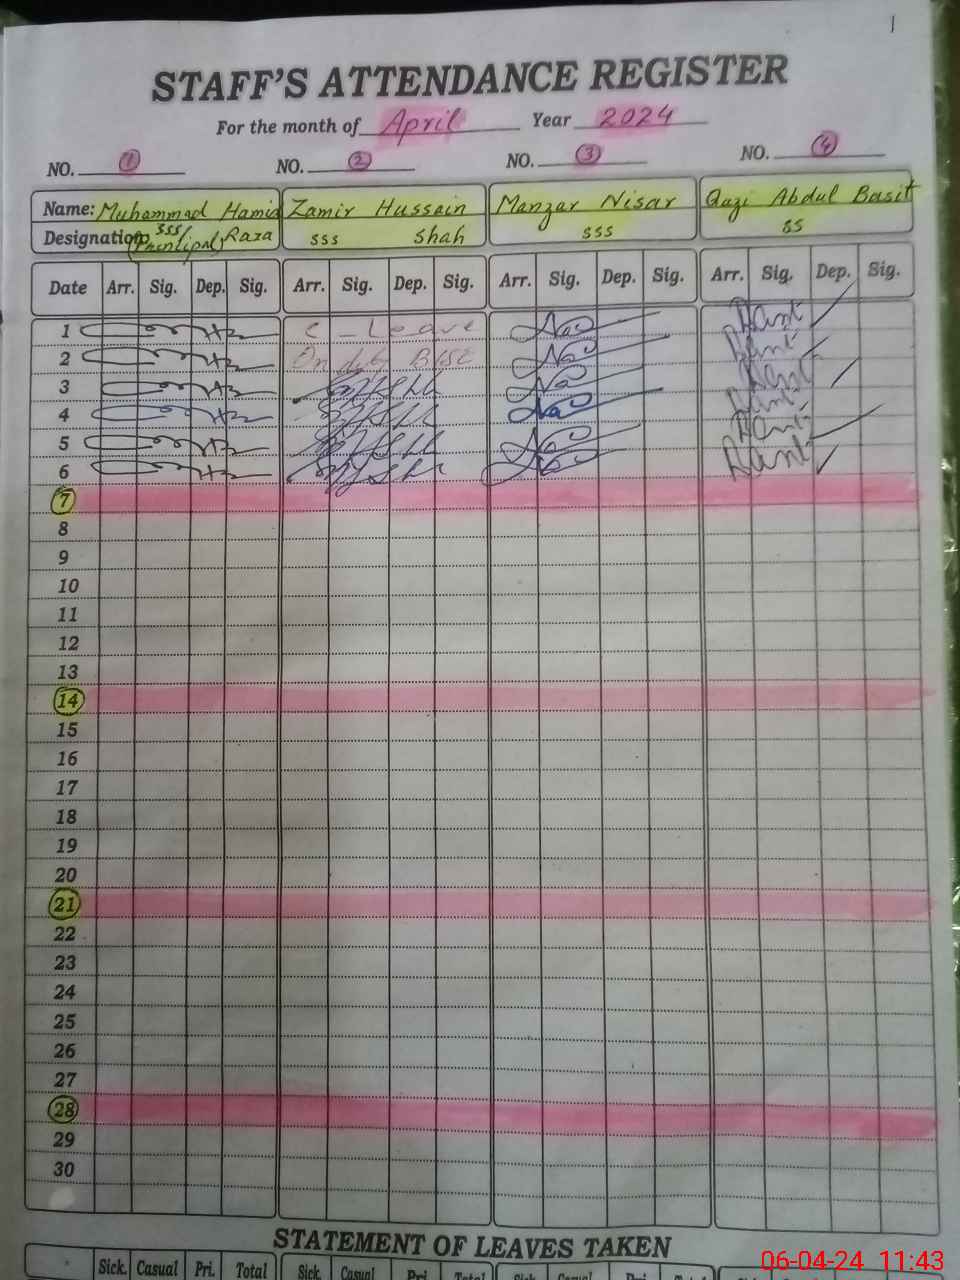 1
STAFF'S ATTENDANCE REGISTER
For the month of April Year 2024
NO. 1 NO. 2 NO. 3 NO. 4
Name: Muhammad Hamid Zamir Hussain Manzar Nisar Qazi Abdul Basit
Designation SSS/ (Principal) Raza SSS Shah SSS SS
Date Arr. Sig. Dep. Sig. Arr. Sig. Dep. Sig. Arr. Sig. Dep. Sig. Arr. Sig. Dep. Sig.
1 C - Leave
2 On duty BISE
3
4
5
6
7
8
9
10
11
12
13
14
15
16
17
18
19
20
21
22
23
24
25
26
27
28
29
30
STATEMENT OF LEAVES TAKEN
Sick. Casual Pri. Total Sick. Casual Pri. Total Sick. Casual Pri. Total
06-04-24 11:43